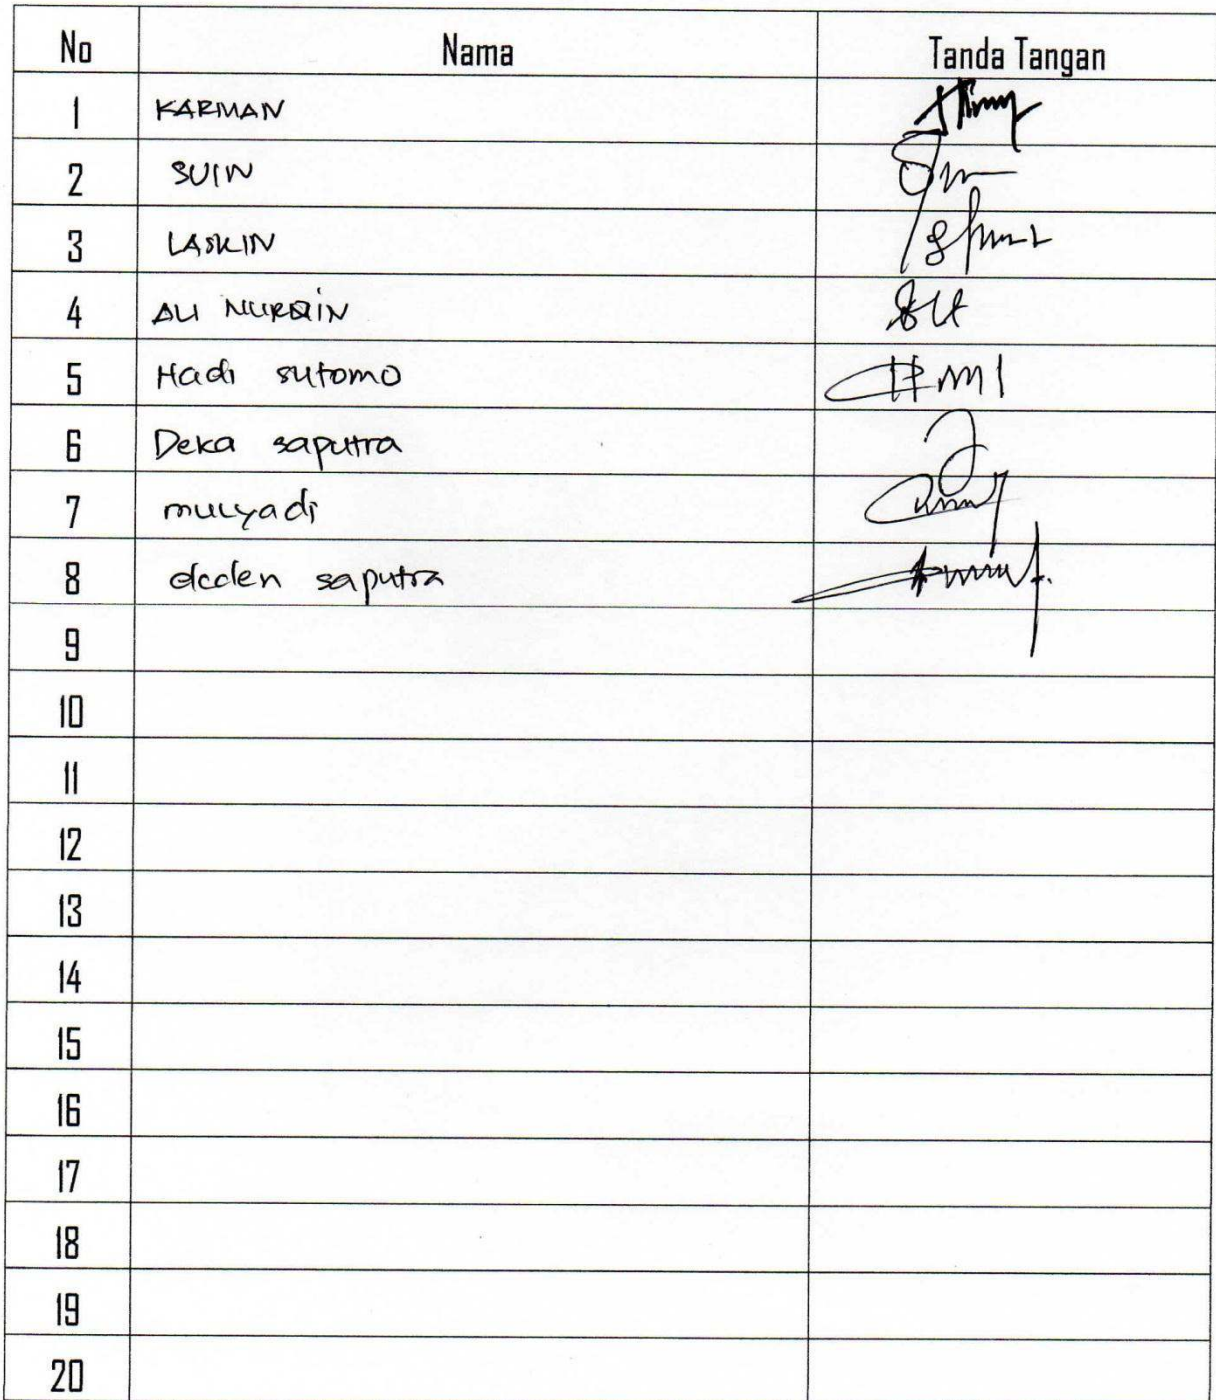 No Nama Tanda Tangan
1 KARMAN
2 SUIN
3 LASKIN
4 ALI NURAIN
5 Hadi sutomo
6 Deka saputra
7 mulyadi
8 saputra
9
10
11
12
13
14
15
16
17
18
19
20